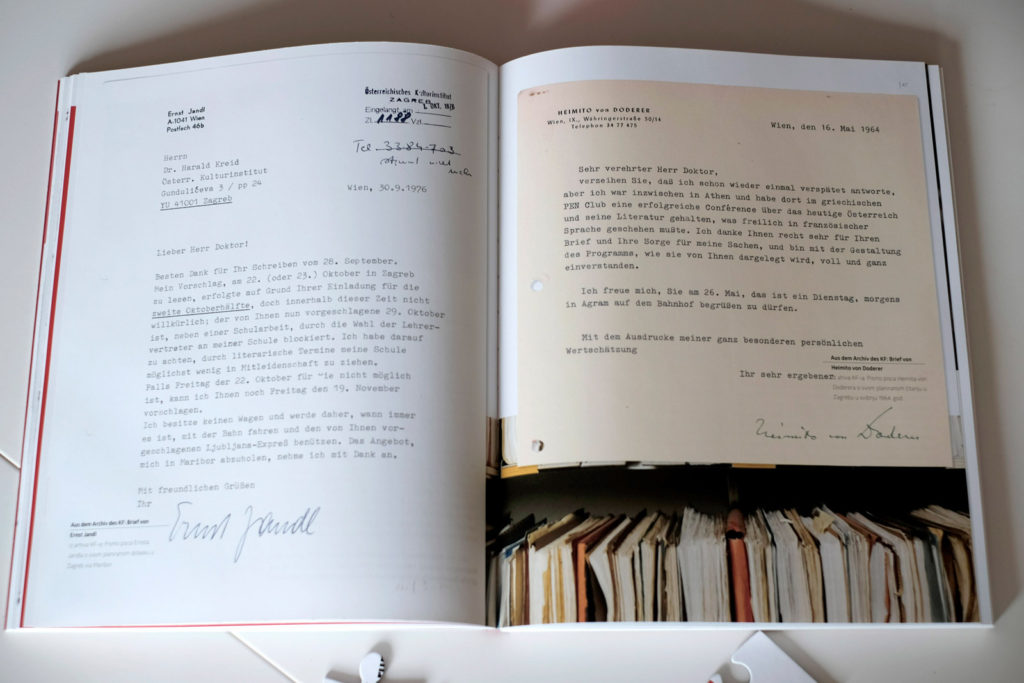 Ernst Jandl
A-1041 Wien
Postfach 46b
Österreichisches Kulturinstitut
ZAGREB
Eingelangt am 1. OKT. 1976
Zl. 1188 Vd.
Tel 3384703
Herrn
Dr. Harald Kreid
Österr. Kulturinstitut
Gundulićeva 3 / pp 24
YU 41001 Zagreb
Wien, 30.9.1976
Lieber Herr Doktor!
Besten Dank für Ihr Schreiben vom 28. September.
Mein Vorschlag, am 22. (oder 23.) Oktober in Zagreb
zu lesen, erfolgte auf Grund Ihrer Einladung für die
zweite Oktoberhälfte, doch innerhalb dieser Zeit nicht
willkürlich; der von Ihnen nun vorgeschlagene 29. Oktober
ist, neben einer Schularbeit, durch die Wahl der Lehrer-
vertreter an meiner Schule blockiert. Ich habe darauf
zu achten, durch literarische Termine meine Schule
möglichst wenig in Mitleidenschaft zu ziehen.
Falls Freitag der 22. Oktober für Sie nicht möglich
ist, kann ich Ihnen noch Freitag den 19. November
vorschlagen.
Ich besitze keinen Wagen und werde daher, wann immer
es ist, mit der Bahn fahren und den von Ihnen vor-
geschlagenen Ljubljana-Expreß benützen. Das Angebot,
mich in Maribor abzuholen, nehme ich mit Dank an.
Mit freundlichen Grüßen
Ihr
Ernst Jandl
Aus dem Archiv des KF: Brief von
Ernst Jandl
Iz arhiva KF-a: Pismo pisca Ernsta
Jandla o svom planiranom dolasku u
Zagreb via Maribor
HEIMITO von DODERER
Wien, IX., Währingerstraße 50/14
Telephon 34 77 475
Wien, den 16. Mai 1964
Sehr verehrter Herr Doktor,
verzeihen Sie, daß ich schon wieder einmal verspätet antworte,
aber ich war inzwischen in Athen und habe dort im griechischen
PEN Club eine erfolgreiche Conférence über das heutige Österreich
und seine Literatur gehalten, was freilich in französischer
Sprache geschehen mußte. Ich danke Ihnen recht sehr für Ihren
Brief und Ihre Sorge für meine Sachen, und bin mit der Gestaltung
des Programms, wie sie von Ihnen dargelegt wird, voll und ganz
einverstanden.
Ich freue mich, Sie am 26. Mai, das ist ein Dienstag, morgens
in Agram auf dem Bahnhof begrüßen zu dürfen.
Mit dem Ausdrucke meiner ganz besonderen persönlichen
Wertschätzung
Ihr sehr ergebener
Heimito von Doderer
Aus dem Archiv des KF: Brief von
Heimito von Doderer
Iz arhiva KF-a: Pismo pisca Heimita von
Doderera o svom planiranom čitanju u
Zagrebu u svibnju 1964. god.